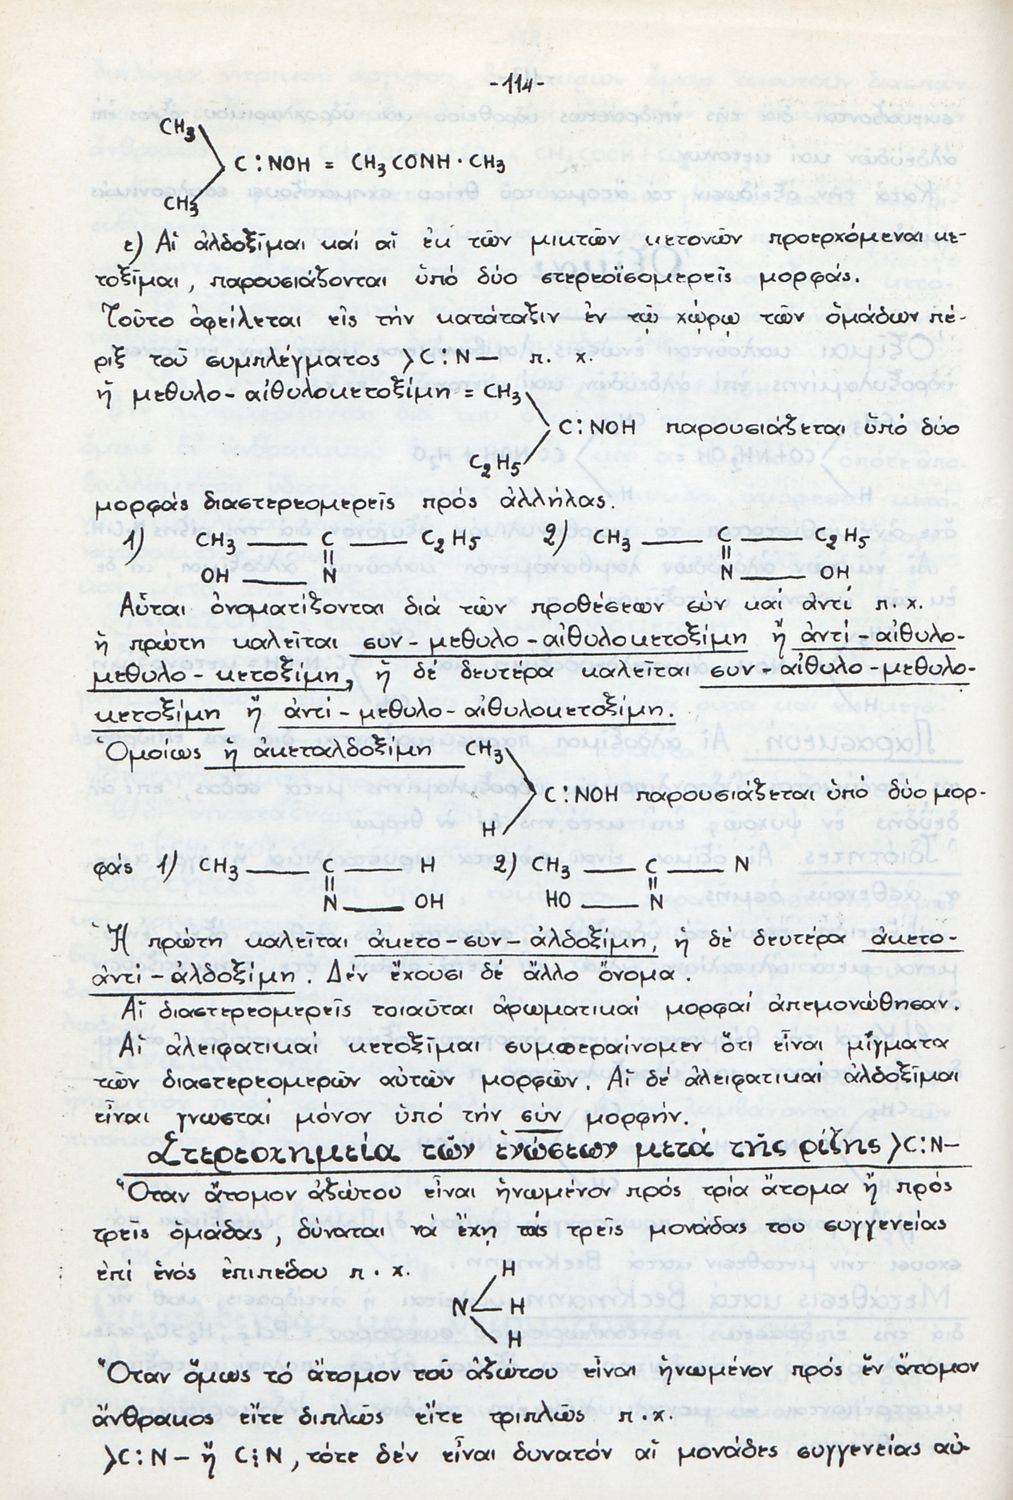 -114-
CH3
C:NOH = CH3CONH·CH3
CH3
ε) Αἱ ἀλδοξῖμαι καί αἱ ἐκ τῶν μικτῶν κετονῶν προερχόμεναι κε-
τοξῖμαι, παρουσιάζονται ὑπό δύο στερεοϊσομερεῖς μορφάς.
Τοῦτο ὀφείλεται εἰς τήν κατάταξιν ἐν τῷ χώρῳ τῶν ὁμάδων πέ-
ριξ τοῦ συμπλέγματος >C:N— π. χ.
ἡ μεθυλο-αἰθυλοκετοξίμη = CH3
C:NOH παρουσιάζεται ὑπό δύο
C2H5
μορφάς διαστερεομερεῖς πρός ἀλλήλας.
1) CH3 — C — C2H5 2) CH3 — C — C2H5
OH — N N — OH
Αὗται ὀνοματίζονται διά τῶν προθέσεων σύν καί ἀντί π.χ.
ἡ πρώτη καλεῖται συν-μεθυλο-αἰθυλοκετοξίμη ἤ ἀντί-αἰθυλο-
μεθυλο-κετοξίμη, ἡ δέ δευτέρα καλεῖται συν-αἰθυλο-μεθυλο-
κετοξίμη ἤ ἀντί-μεθυλο-αἰθυλοκετοξίμη.
Ὁμοίως ἡ ἀκεταλδοξίμη CH3
C:NOH παρουσιάζεται ὑπό δύο μορ-
H
φάς 1) CH3 — C — H 2) CH3 — C — N
N — OH HO — N
Ἡ πρώτη καλεῖται ἀκετο-συν-ἀλδοξίμη, ἡ δέ δευτέρα ἀκετο-
ἀντί-ἀλδοξίμη. Δέν ἔχουσι δέ ἄλλο ὄνομα.
Αἱ διαστερεομερεῖς τοιαῦται ἀρωματικαί μορφαί ἀπεμονώθησαν.
Αἱ ἀλειφατικαί κετοξῖμαι συμπεραίνομεν ὅτι εἶναι μίγματα
τῶν διαστερεομερῶν αὐτῶν μορφῶν. Αἱ δέ ἀλειφατικαί ἀλδοξῖμαι
εἶναι γνωσταί μόνον ὑπό τήν σύν μορφήν.
Στερεοχημεία τῶν ἑνώσεων μετά τῆς ρίζης >C:N—
Ὅταν ἄτομον ἀζώτου εἶναι ἡνωμένον πρός τρία ἄτομα ἤ πρός
τρεῖς ὁμάδας, δύναται νά ἔχῃ τάς τρεῖς μονάδας του συγγενείας
ἐπί ἑνός ἐπιπέδου π.χ. H
N — H
H
Ὅταν ὅμως τό ἄτομον τοῦ ἀζώτου εἶναι ἡνωμένον πρός ἕν ἄτομον
ἄνθρακος εἴτε διπλῶς εἴτε τριπλῶς π.χ.
>C:N— ἤ C⋮N, τότε δέν εἶναι δυνατόν αἱ μονάδες συγγενείας αὐ-